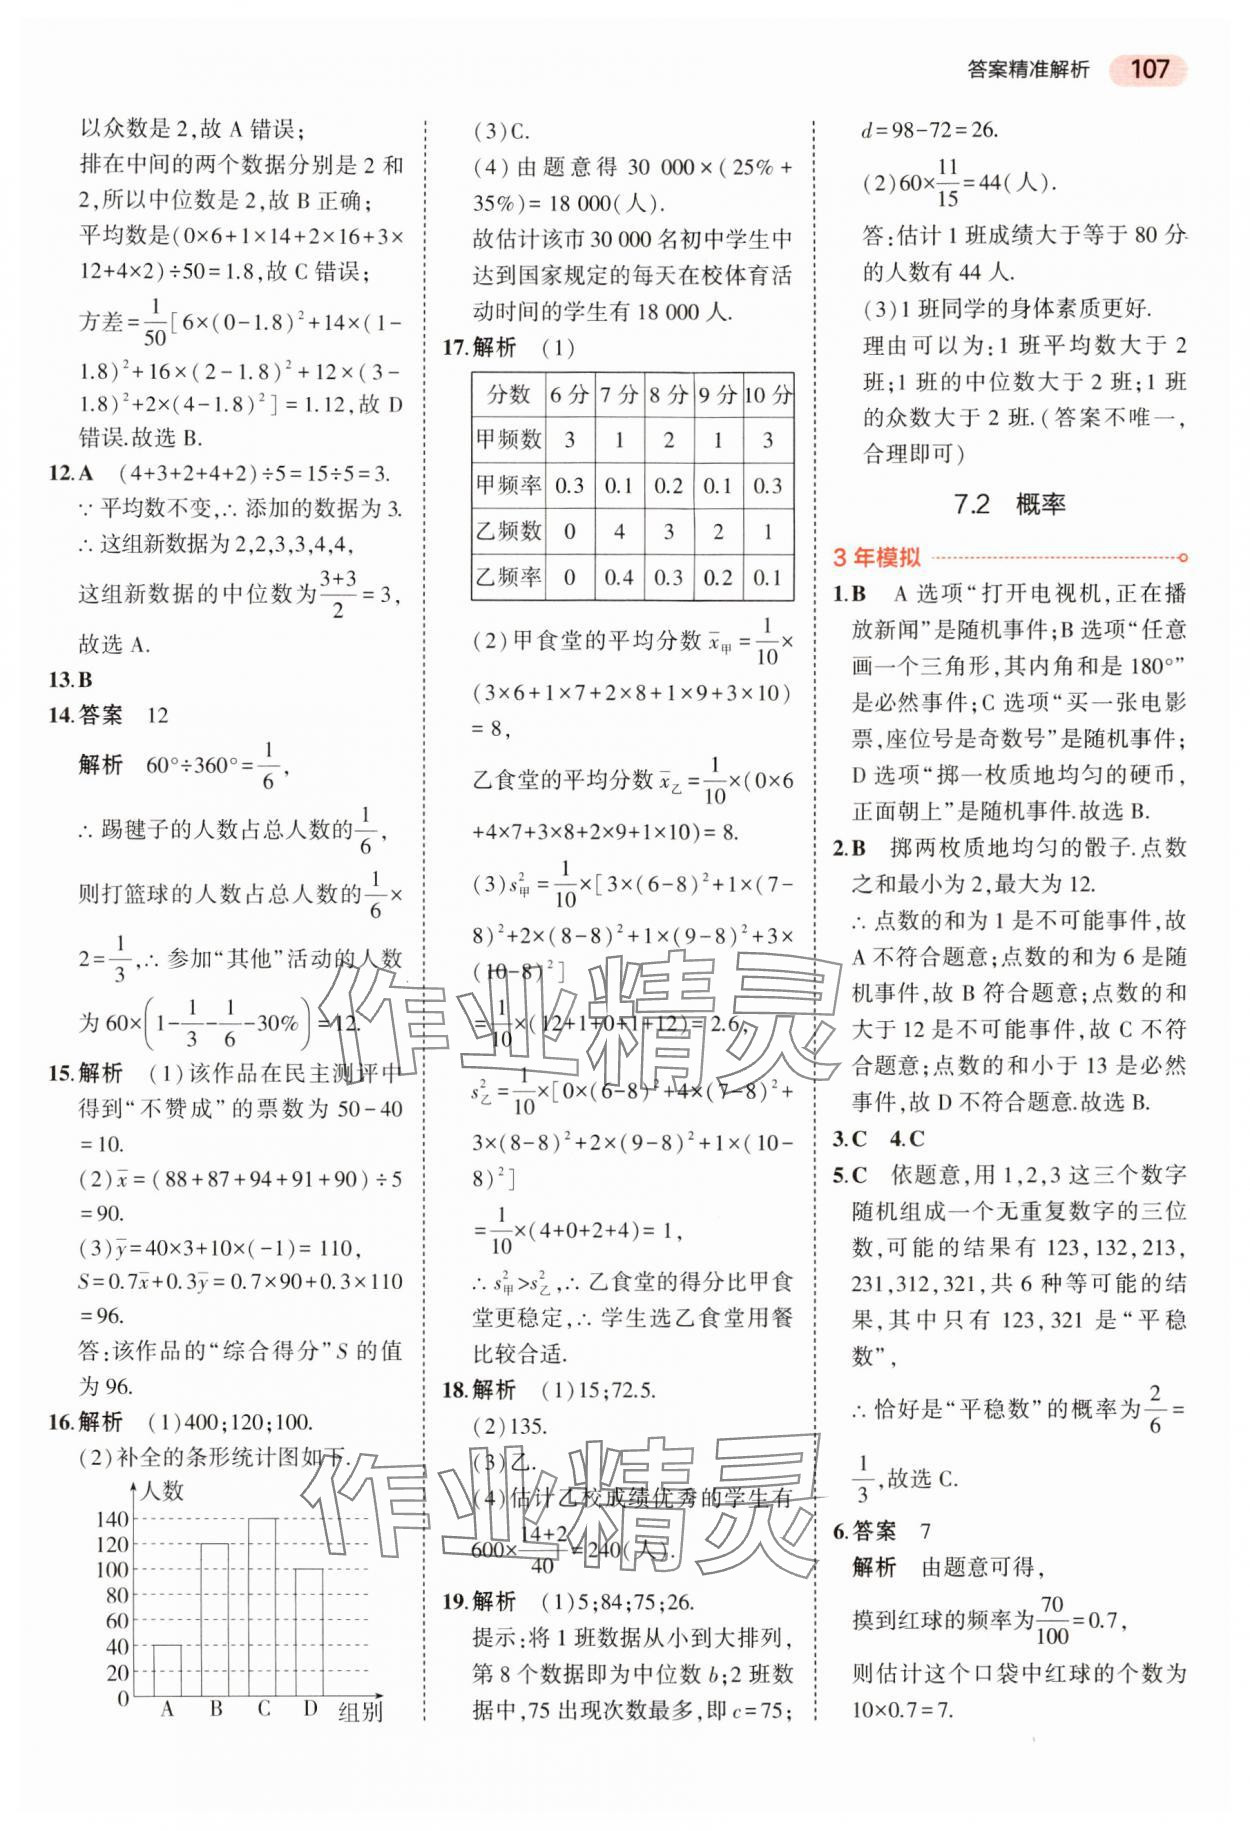 答案精准解析 107
以众数是2,故A错误;
排在中间的两个数据分别是2和
2,所以中位数是2,故B正确;
平均数是(0×6+1×14+2×16+3×
12+4×2)÷50=1.8,故C错误;
方差=1/50[6×(0-1.8)²+14×(1-
1.8)²+16×(2-1.8)²+12×(3-
1.8)²+2×(4-1.8)²]=1.12,故D
错误.故选B.
12.A (4+3+2+4+2)÷5=15÷5=3.
∵平均数不变,∴添加的数据为3.
∴这组新数据为2,2,3,3,4,4,
这组新数据的中位数为(3+3)/2=3,
故选A.
13.B
14.答案 12
解析 60°÷360°=1/6,
∴踢毽子的人数占总人数的1/6,
则打篮球的人数占总人数的1/6×
2=1/3,∴参加“其他”活动的人数
为60×(1-1/3-1/6-30%)=12.
15.解析 (1)该作品在民主测评中
得到“不赞成”的票数为50-40
=10.
(2)x̄=(88+87+94+91+90)÷5
=90.
(3)ȳ=40×3+10×(-1)=110,
S=0.7x̄+0.3ȳ=0.7×90+0.3×110
=96.
答:该作品的“综合得分”S的值
为96.
16.解析 (1)400;120;100.
(2)补全的条形统计图如下.
人数
140
120
100
80
60
40
20
0
A B C D 组别
(3)C.
(4)由题意得30 000×(25%+
35%)=18 000(人).
故估计该市30 000名初中学生中
达到国家规定的每天在校体育活
动时间的学生有18 000人.
17.解析 (1)
分数 6分 7分 8分 9分 10分
甲频数 3 1 2 1 3
甲频率 0.3 0.1 0.2 0.1 0.3
乙频数 0 4 3 2 1
乙频率 0 0.4 0.3 0.2 0.1
(2)甲食堂的平均分数x̄甲=1/10×
(3×6+1×7+2×8+1×9+3×10)
=8,
乙食堂的平均分数x̄乙=1/10×(0×6
+4×7+3×8+2×9+1×10)=8.
(3)s²甲=1/10×[3×(6-8)²+1×(7-
8)²+2×(8-8)²+1×(9-8)²+3×
(10-8)²]
=1/10×(12+1+0+1+12)=2.6,
s²乙=1/10×[0×(6-8)²+4×(7-8)²+
3×(8-8)²+2×(9-8)²+1×(10-
8)²]
=1/10×(4+0+2+4)=1,
∴s²甲>s²乙,∴乙食堂的得分比甲食
堂更稳定,∴学生选乙食堂用餐
比较合适.
18.解析 (1)15;72.5.
(2)135.
(3)乙.
(4)估计乙校成绩优秀的学生有
600×(14+2)/40=240(人).
19.解析 (1)5;84;75;26.
提示:将1班数据从小到大排列,
第8个数据即为中位数b;2班数
据中,75出现次数最多,即c=75;
d=98-72=26.
(2)60×11/15=44(人).
答:估计1班成绩大于等于80分
的人数有44人.
(3)1班同学的身体素质更好.
理由可以为:1班平均数大于2
班;1班的中位数大于2班;1班
的众数大于2班.(答案不唯一,
合理即可)
7.2 概率
3年模拟
1.B A选项“打开电视机,正在播
放新闻”是随机事件;B选项“任意
画一个三角形,其内角和是180°”
是必然事件;C选项“买一张电影
票,座位号是奇数号”是随机事件;
D选项“掷一枚质地均匀的硬币,
正面朝上”是随机事件.故选B.
2.B 掷两枚质地均匀的骰子.点数
之和最小为2,最大为12.
∴点数的和为1是不可能事件,故
A不符合题意;点数的和为6是随
机事件,故B符合题意;点数的和
大于12是不可能事件,故C不符
合题意;点数的和小于13是必然
事件,故D不符合题意.故选B.
3.C 4.C
5.C 依题意,用1,2,3这三个数字
随机组成一个无重复数字的三位
数,可能的结果有123,132,213,
231,312,321,共6种等可能的结
果,其中只有123,321是“平稳
数”,
∴恰好是“平稳数”的概率为2/6=
1/3,故选C.
6.答案 7
解析 由题意可得,
摸到红球的频率为70/100=0.7,
则估计这个口袋中红球的个数为
10×0.7=7.
作业精灵
作业精灵